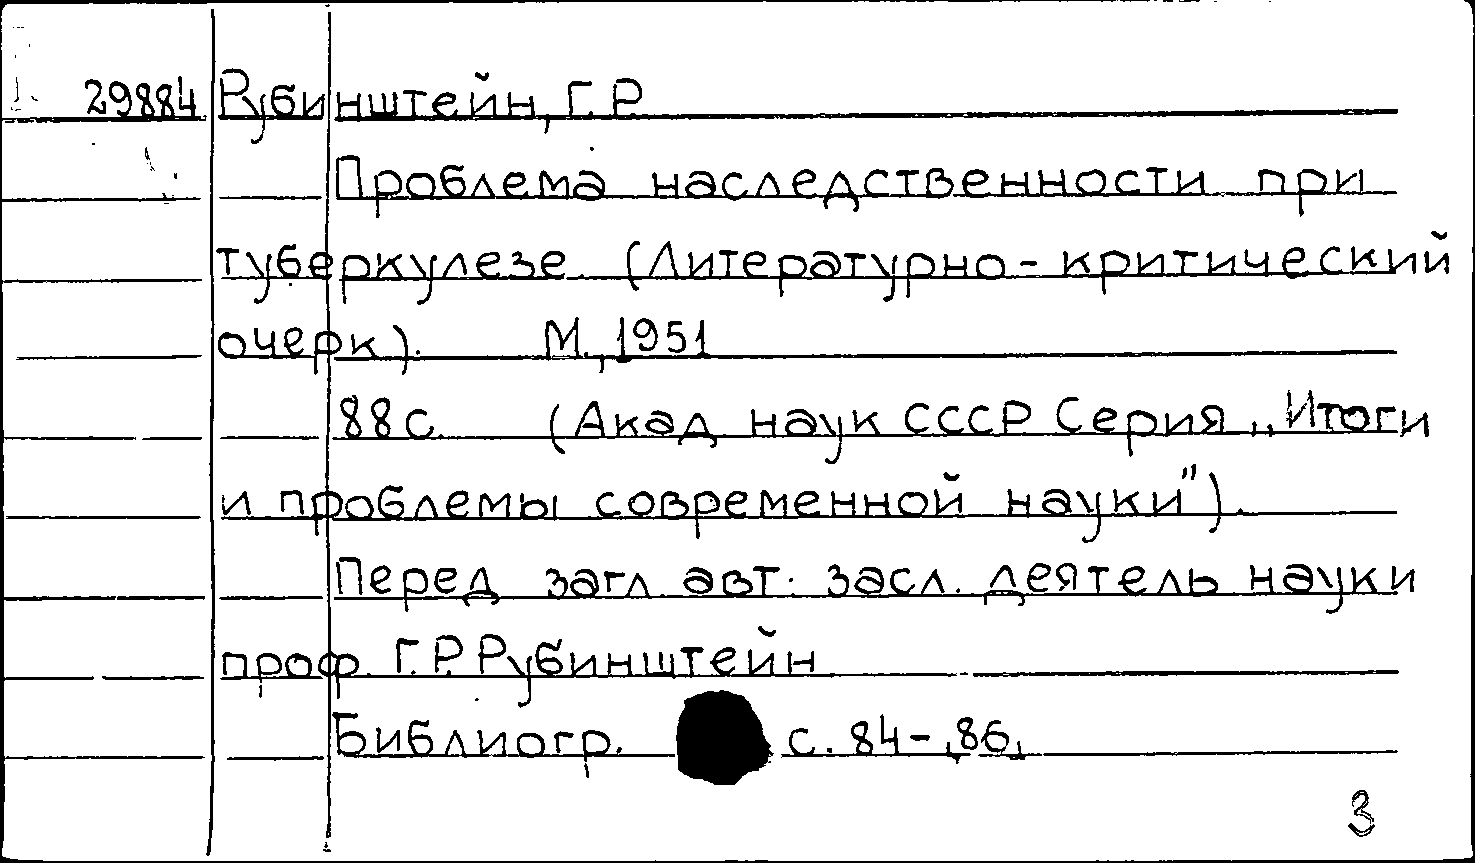 29884 Рубинштейн, Г.Р.
Проблема наследственности при
туберкулезе. (Литературно-критический
очерк). М., 1951
88 с. (Акад. наук СССР Серия „Итоги
и проблемы современной науки").
Перед загл. авт: засл. деятель науки
проф. Г.Р. Рубинштейн
Библиогр. с. 84-86.
3